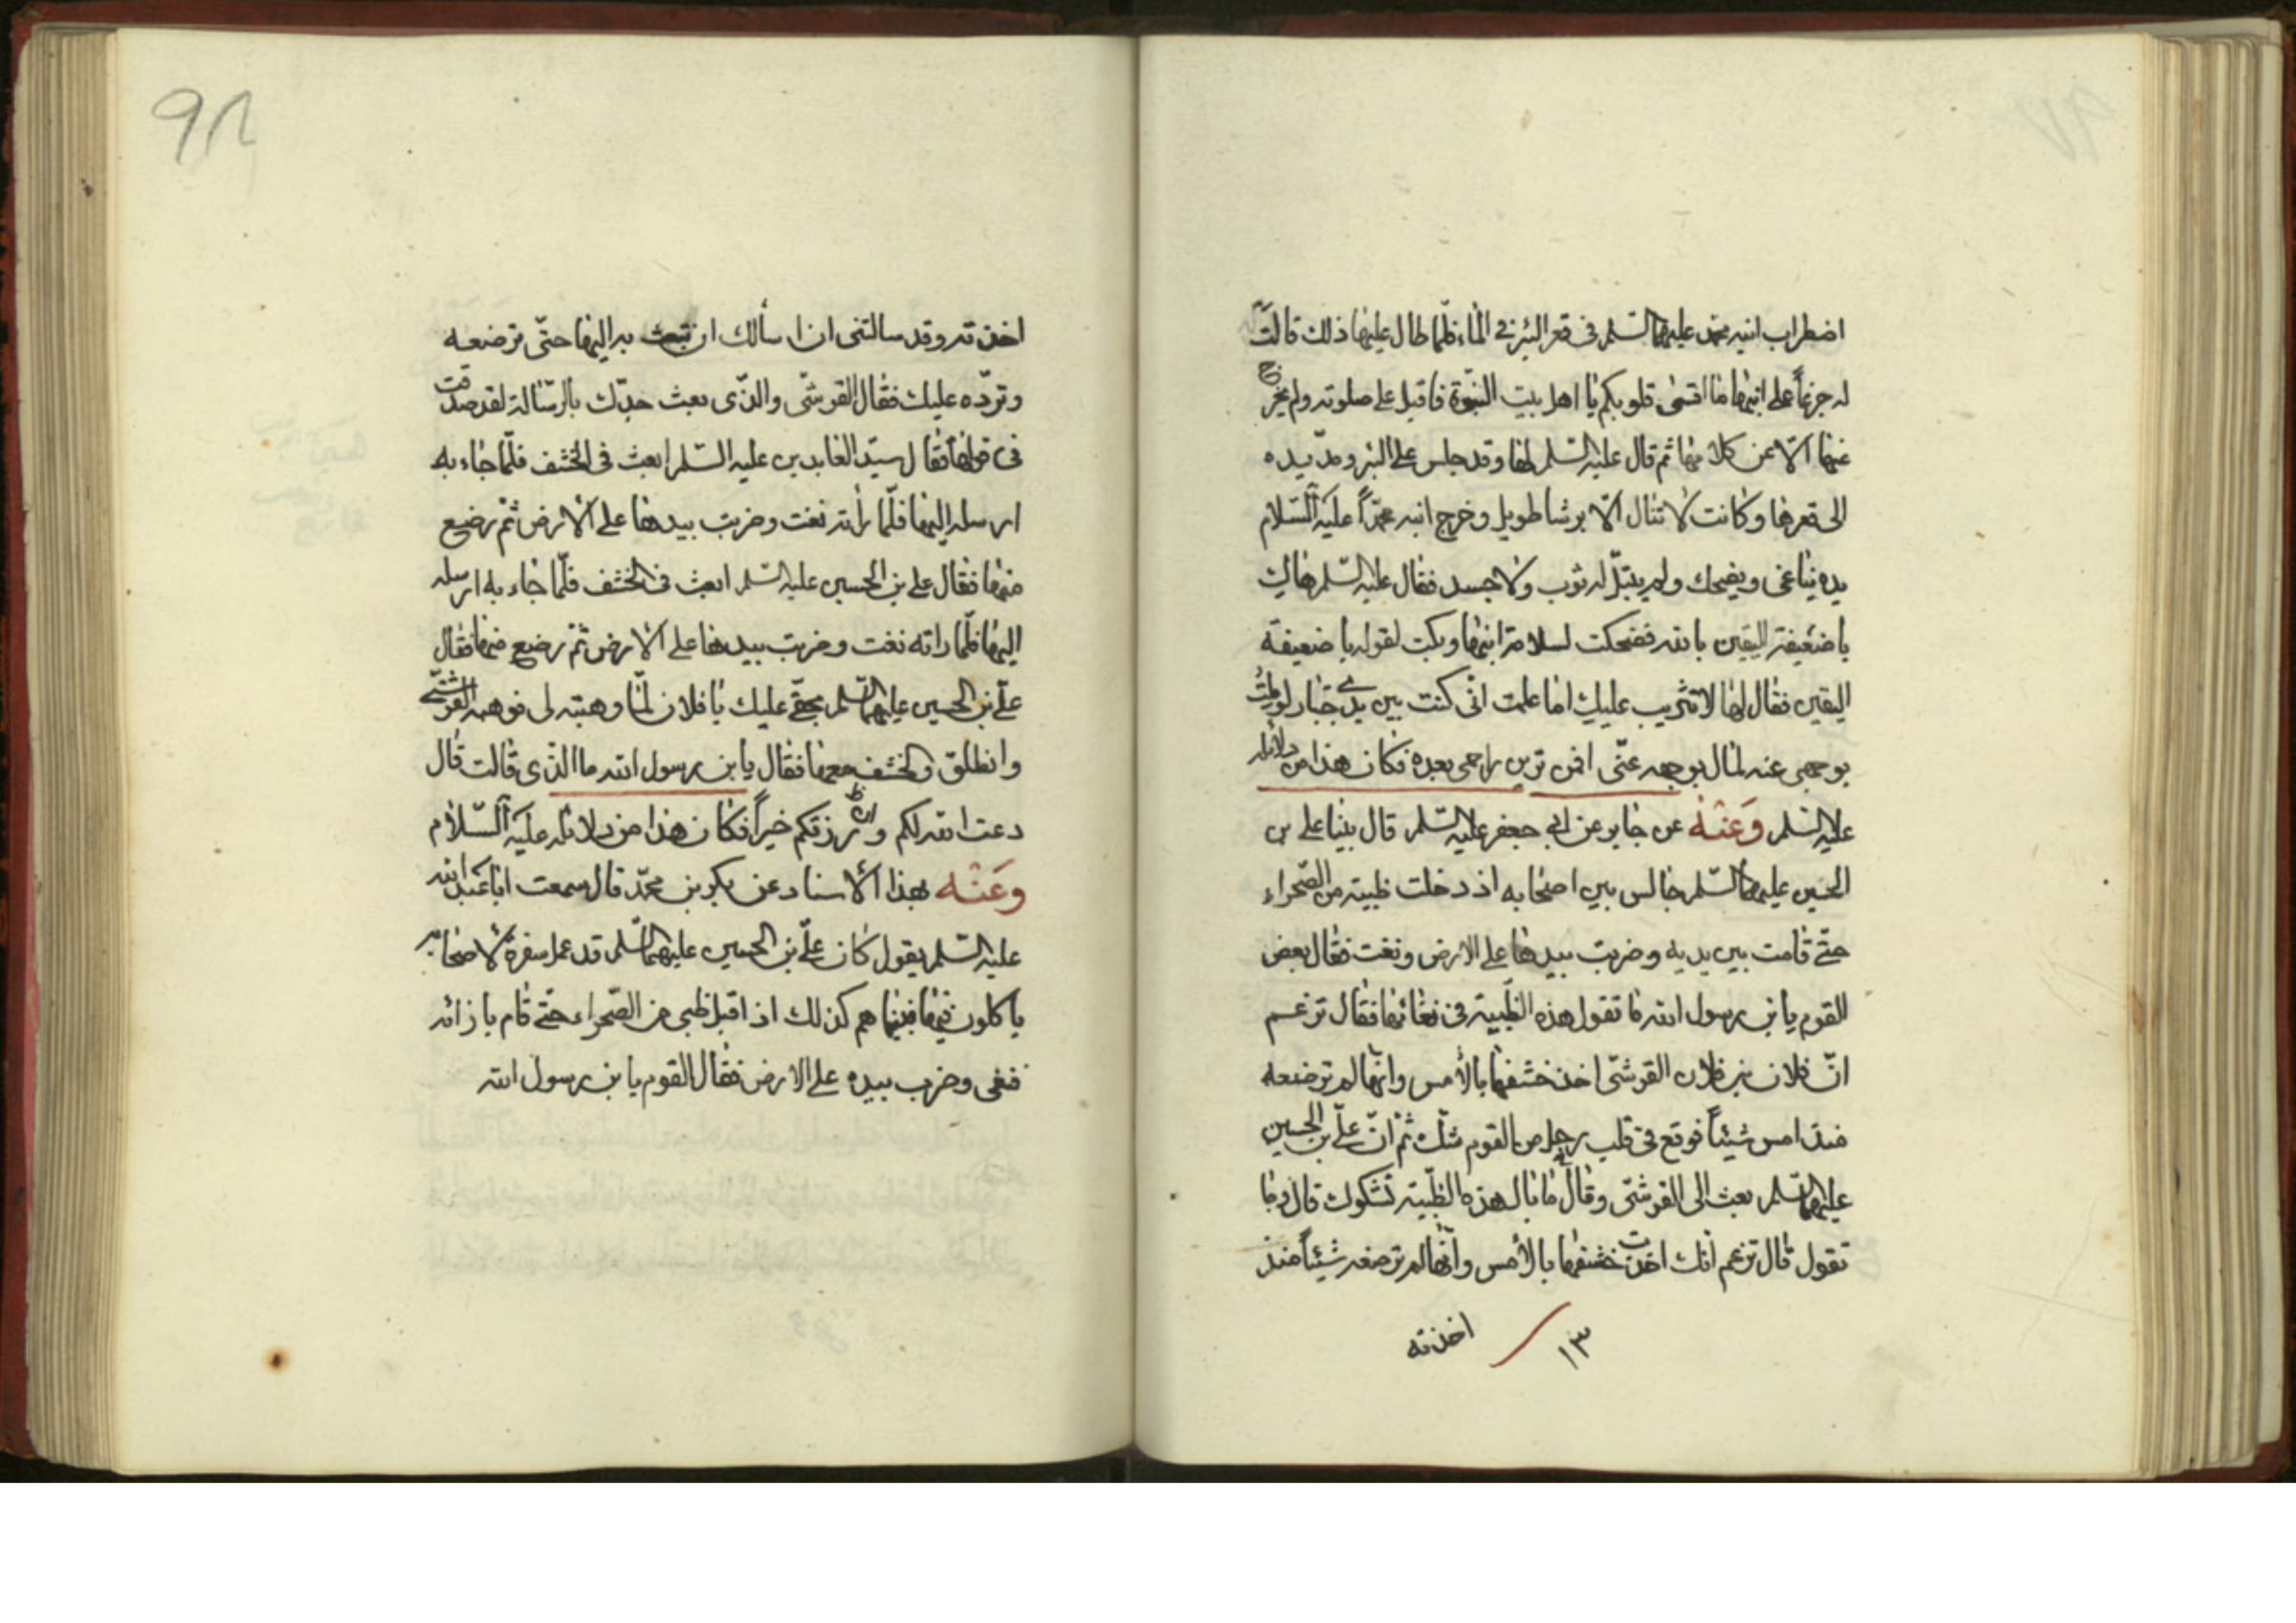 اضطراب ابنه محمد عليهما السلم فى قعر البئر فى الماء فلما طال عليها ذلك قالت
له جزعاً على ابنها ما اقسى قلوبكم يا اهل بيت النبوة فاقبل على صلوته ولم يخرج
عنها الّا عن كلامها ثم قال عليه السلم لها وقد جلس على البئر ومدّ يده
الى قعرها وكانت لا تنال الّا برشا طويل وخرج ابنه محمداً عليه السلام
بيده يناغى ويضحك ولم يبتلّ له ثوب ولا جسد فقال عليه السلم هاك
يا ضعيفة اليقين بالله فضحكت لسلامة ابنها وبكت لقوله يا ضعيفة
اليقين فقال لها لا تثريب عليك اما علمت انّى كنت بين يدى جبار لو ملت
بوجهى عنه لمال بوجهه عنّى افمن ترين راحمى بعده فكان هذا من دلائله
عليه السلم وَعَنْهُ عن جابر عن ابى جعفر عليه السلم قال بينا على بن
الحسين عليهما السلم جالس بين اصحابه اذ دخلت ظبية من الصحراء
حتّى قامت بين يديه وضربت بيدها على الارض ونغت فقال بعض
القوم يا بن رسول الله ما تقول هذه الظبية فى نغائها فقال تزعم
انّ فلان بن فلان القرشى اخذ خشفها بالأمس وانها لم ترضعه
منذ امس شيئاً فوقع فى قلب رجل من القوم شكّ ثم انّ علىّ بن الحسين
عليهما السلم بعث الى القرشى وقال ما بال هذه الظبية تشكوك قال وما
تقول قال تزعم أنك اخذت خشفها بالأمس وانها لم ترضعه شيئاً منذ
١٣ اخذته
٩٨
اخذته وقد سالتنى ان اسألك ان تبعث به اليها حتّى ترضعه
وتردّه عليك فقال القرشى والذى بعث جدّك بالرسالة لقد صدقت
فى قولها فقال سيّد العابدين عليه السلم ابعث فى الخشف فلمّا جاء به
ارسله اليها فلمّا رأته نغت وضربت بيدها على الارض ثم رضع
منها فقال على بن الحسين عليه السلم ابعث فى الخشف فلمّا جاء به ارسله
اليها فلمّا راته نغت وضربت بيدها على الارض ثم رضع منها فقال
علىّ بن الحسين عليهما السلم بحقّى عليك يا فلان لمّا وهبته لى فوهبه القرشى
وانطلق والخشف معها فقال يا بن رسول الله ما الذى قالت قال
دعت الله لكم وان رزقكم خيراً فكان هذا من دلائله عليه السلام
وَعَنْه بهذا الاسناد عن بكر بن محمّد قال سمعت ابا عبد الله
عليه السلم يقول كان علىّ بن الحسين عليهما السلم قد عمل سفرة لاصحابه
ياكلون فيها فبينما هم كذلك اذ اقبل ظبى من الصحراء حتّى قام بازائه
فنغى وضرب بيده على الارض فقال القوم يا بن رسول الله